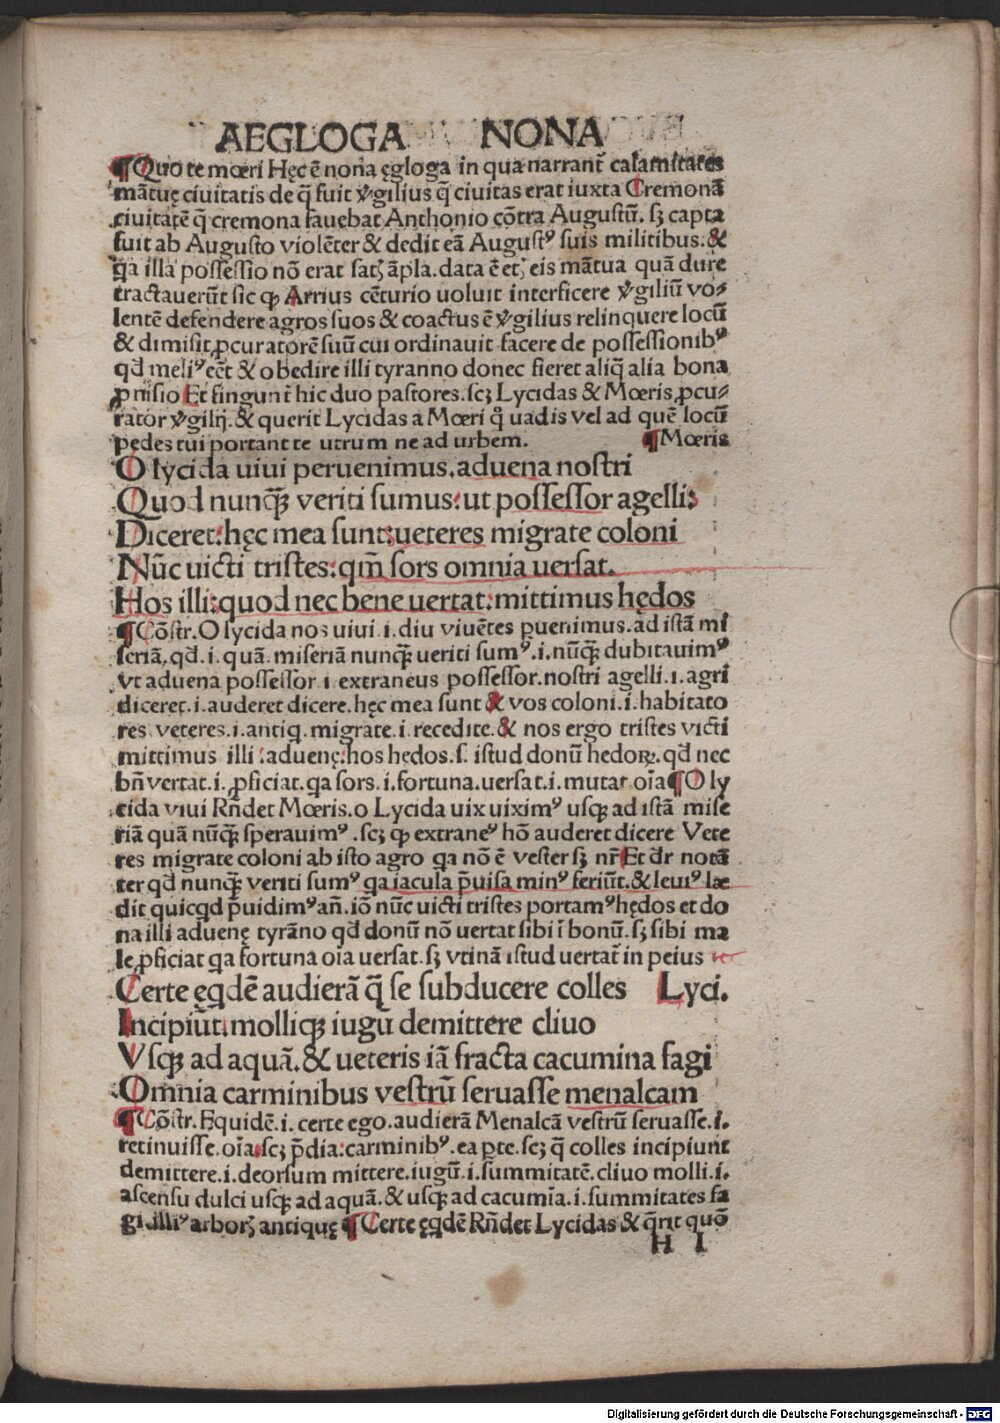 AEGLOGA NONA
¶Quo te mœri Hęc ē nona ęgloga in qua narrant᷑ calamitates
mātuę ciuitatis de q̄ fuit v̕gilius q̄ ciuitas erat iuxta Cremonā
ciuitatē q̄ cremona fauebat Anthonio cōtra Augustū. sꝫ capta
fuit ab Augusto violēter & dedit eā Augustꝰ suis militibus. &
qa illa possessio nō erat satꝫ āpla. data ē etꝫ eis mātua quā dure
tractauerūt sic ꝙ Arrius cēturio uoluit interficere v̕giliū vo⸗
lentē defendere agros suos & coactus ē v̕gilius relinquere locū
& dimisit ꝓcuratorē suū cui ordinauit facere de possessionibꝰ
qd̄ meliꝰ eēt & obedire illi tyranno donec fieret aliq̄ alia bona
ꝓuisio Et fingunt᷑ hic duo pastores. scꝫ Lycidas & Mœris ꝓcu⸗
rator v̕gilij. & querit Lycidas a Mœri q̊ uadis vel ad quē locū
pedes tui portant te utrum ne ad urbem. ¶Mœris
O lycida uiui peruenimus. aduena nostri
Quod nunꝗ̄ veriti sumus: ut possessor agelli:
Diceret: hęc mea sunt: ueteres migrate coloni
Nūc uicti tristes: qm̄ sors omnia uersat.
Hos illi: quod nec bene uertat: mittimus hędos
¶Cōstr. O lycida nos uiui .i. diu viuētes ꝑuenimus. ad istā mi
seriā, qd̄ .i. quā. miseriā nunꝗ̄ ueriti sumꝰ .i. nūꝗ̄ dubitauimꝰ
vt aduena possessor i extraneus possessor. nostri agelli .i. agri
diceret .i. auderet dicere. hęc mea sunt & vos coloni .i. habitato
res. veteres .i. antiq. migrate .i. recedite. & nos ergo tristes victi
mittimus illi : aduenę: hos hędos. s. istud donū hedoꝝ. qd̄ nec
bn̄ vertat .i. ꝓficiat. qa sors .i. fortuna. uersat .i. mutat oīa ¶O ly
cida vivi Rn̄det Mœris. o Lycida uix uiximꝰ usꝗ ad istā mise
riā quā nūꝗ̄ sperauimꝰ. scꝫ ꝙ extraneꝰ hō auderet dicere Vete
res migrate coloni ab isto agro qa nō ē vester sꝫ nr̄ Et dr̄ notā
ter qd̄ nunꝗ̄ veriti sumꝰ qa iacula p̄uisa minꝰ feriūt. & leuiꝰ læ
dit quicqd p̄uidimꝰ añ. iō nūc uicti tristes portamꝰ hędos et do
na illi aduenę tyrāno qd̄ donū nō uertat sibi ī bonū. sꝫ sibi ma
le ꝓficiat qa fortuna oīa uersat. sꝫ vtinā istud uertat᷑ in peius
Certe ęqdē audierā q̄ se subducere colles Lyci.
Incipiūt: molliꝗ iugū demittere cliuo
Vsꝗ ad aquā. & ueteris iā fracta cacumina fagi
Omnia carminibus vestrū seruasse menalcam
¶Cōstr. Equidē .i. certe ego. audierā Menalcā vestrū seruasse .i.
retinuisse. oīa. scꝫ p̄dia: carminibꝰ. ea ꝑte. scꝫ q̄ colles incipiunt
demittere .i. deorsum mittere. iugū .i. summitatē. cliuo molli .i.
ascensu dulci usꝗ ad aquā. & usꝗ ad cacumīa .i. summitates fa
gi .illiꝰ arborꝫ antiquę ¶Certe ęqdē Rn̄det Lycidas & q̄rit quō
H I
Digitalisierung gefördert durch die Deutsche Forschungsgemeinschaft - DFG